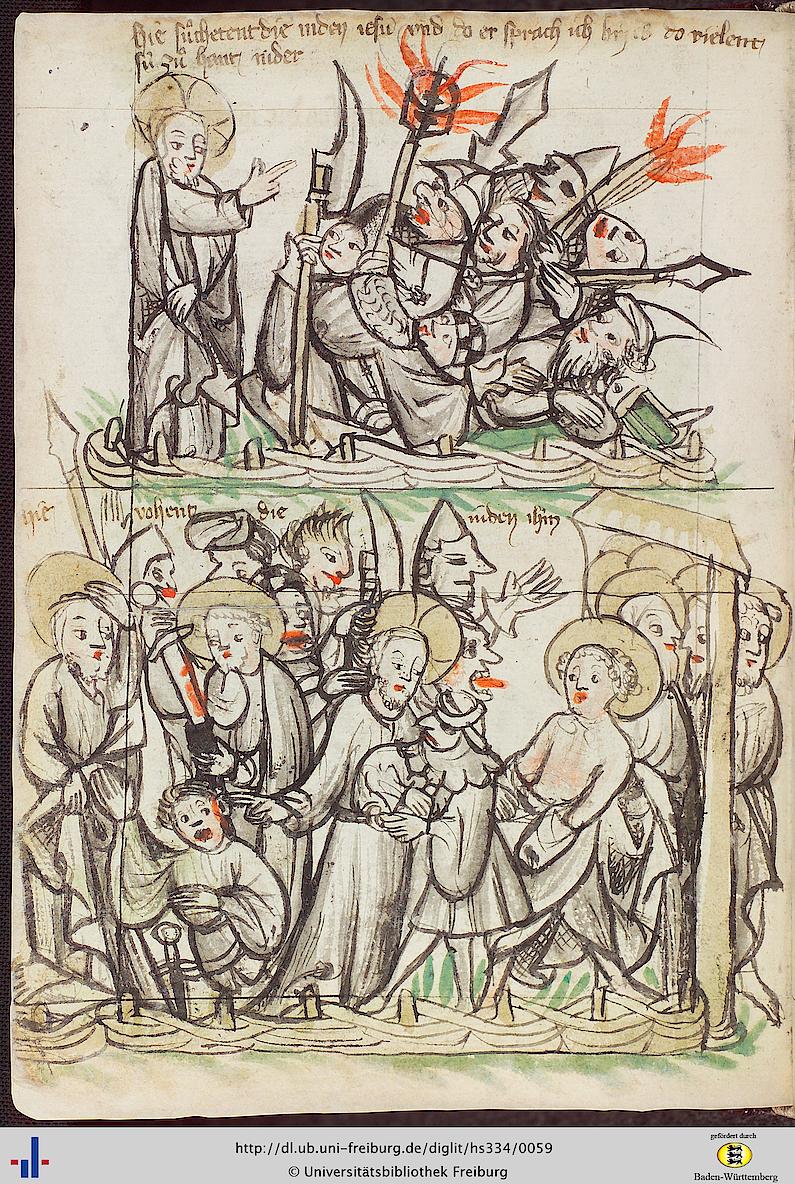 Hie sůchetent die iuden iesu vnd do er sprach ich bin is do vielent
sú zů hant nider
hie vohent die iuden ihm
http://dl.ub.uni-freiburg.de/diglit/hs334/0059
© Universitätsbibliothek Freiburg
gefördert durch
Baden-Württemberg